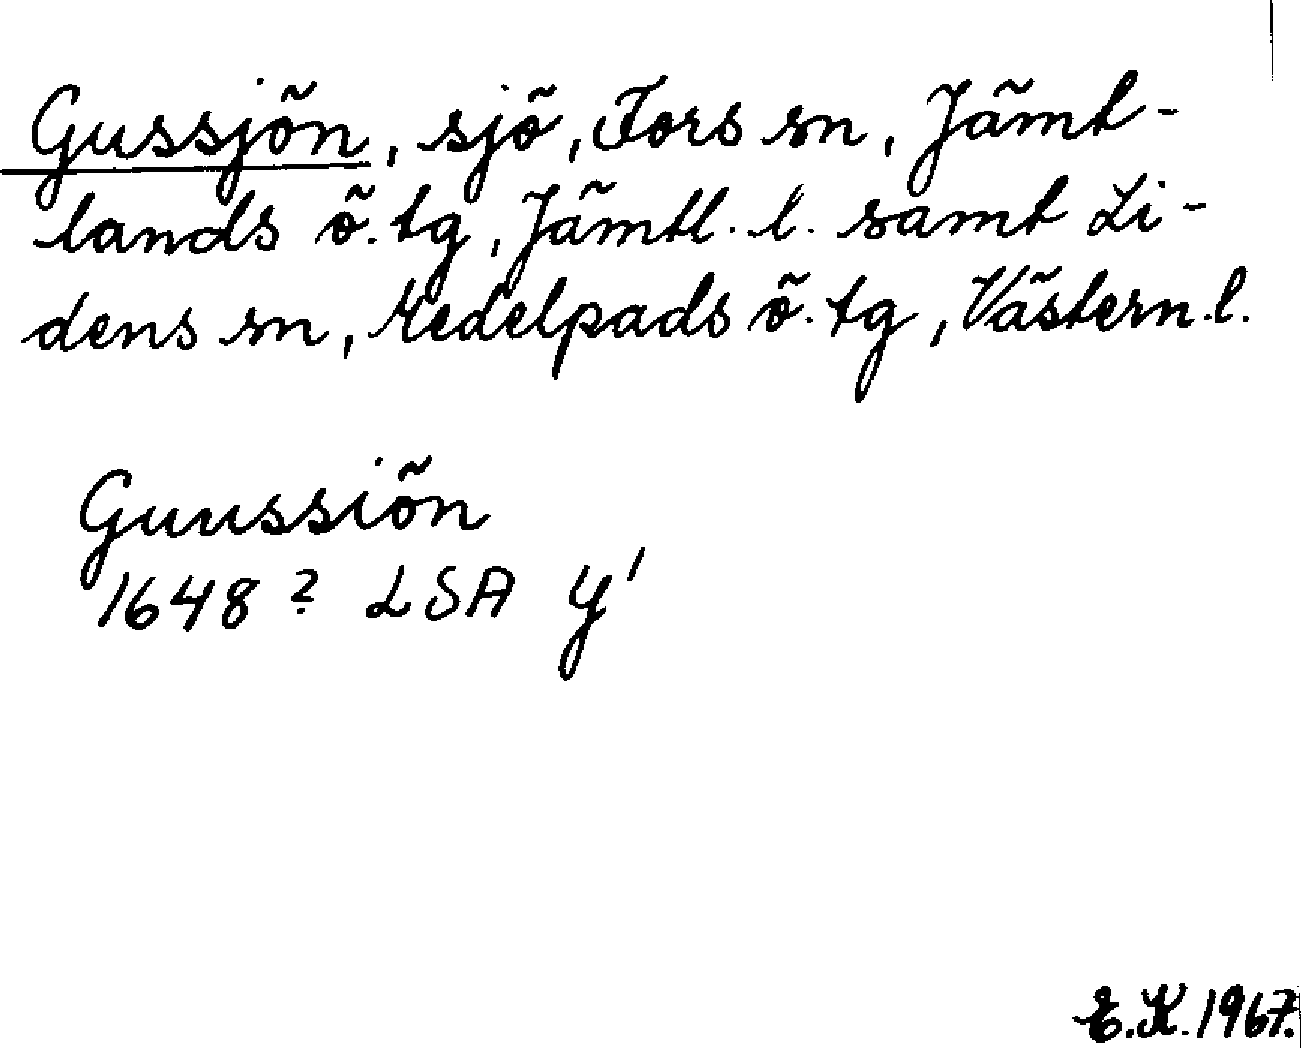 Gussjön, sjö, Fors sn, Jämt-
lands ö. tg, Jämtl. l. samt Li-
dens sn, Medelpads ö. tg, Västern. l.
Guussiön
1648? LSA Y1
E.K. 1967.